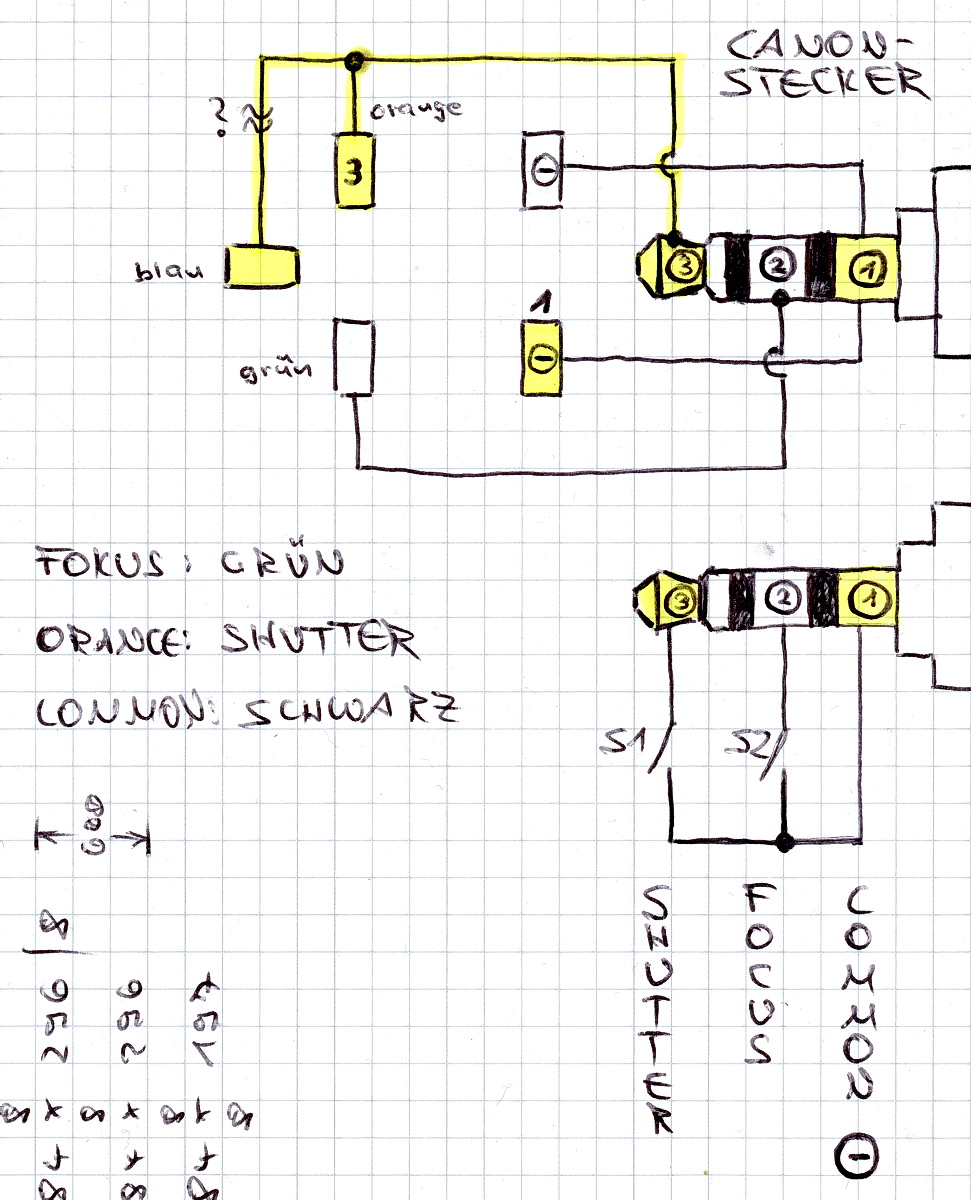 CANON-
STECKER
?
orange
3
⊖
blau
3
2
1
1
grün
⊖
FOKUS: GRÜN
3
2
1
ORANGE: SHUTTER
COMMON: SCHWARZ
S1
S2
SHUTTER
FOCUS
COMMON
⊖